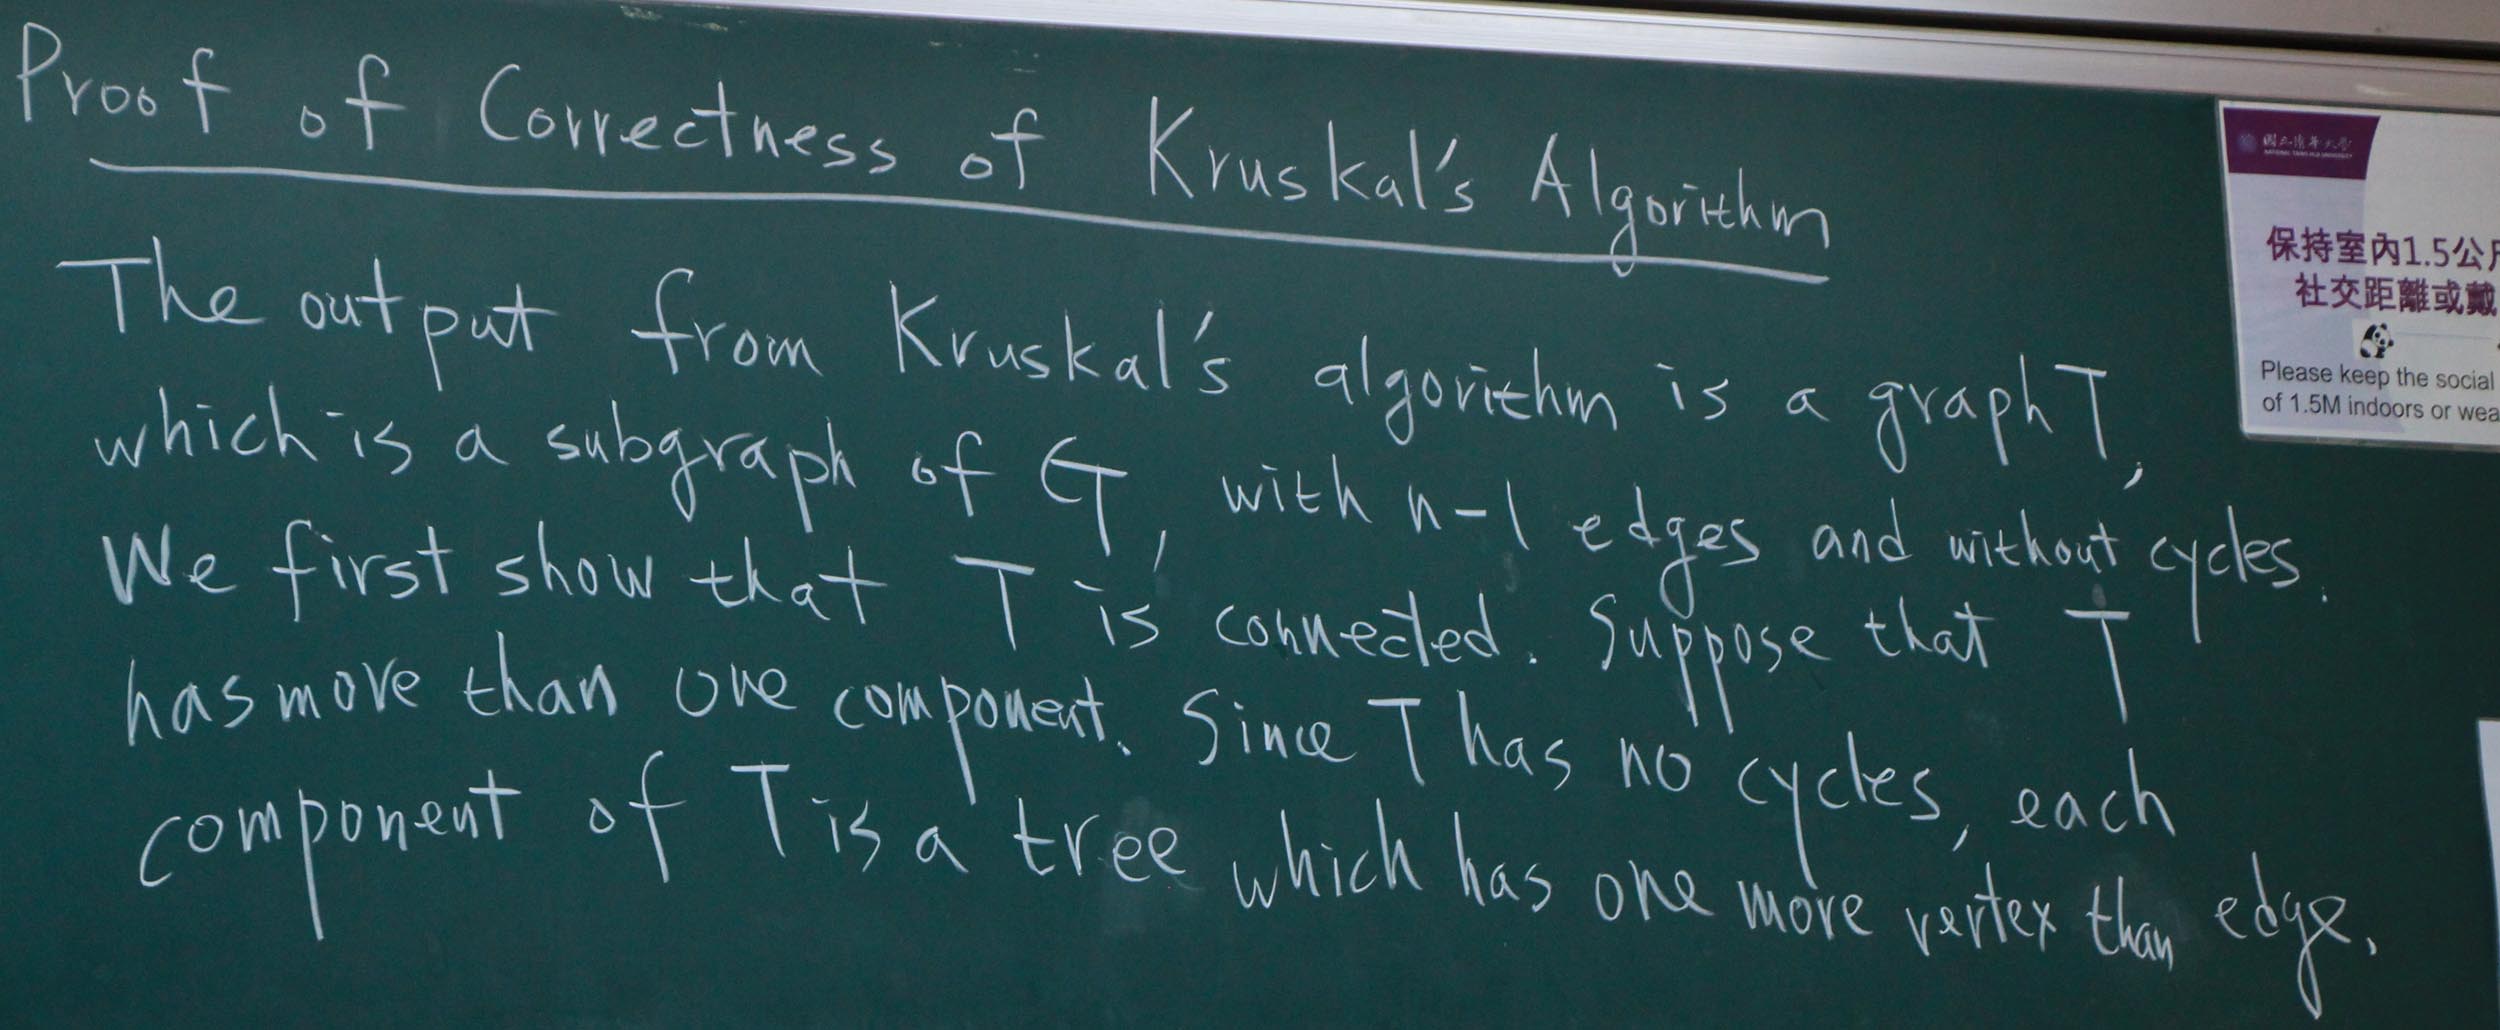 Proof of Correctness of Kruskal's Algorithm
The output from Kruskal's algorithm is a graph T,
which is a subgraph of G, with n-1 edges and without cycles.
We first show that T is connected. Suppose that T
has more than one component. Since T has no cycles, each
component of T is a tree which has one more vertex than edge.
國立清華大學
NATIONAL TSING HUA UNIVERSITY
保持室內1.5公
社交距離或戴
Please keep the social
of 1.5M indoors or wea